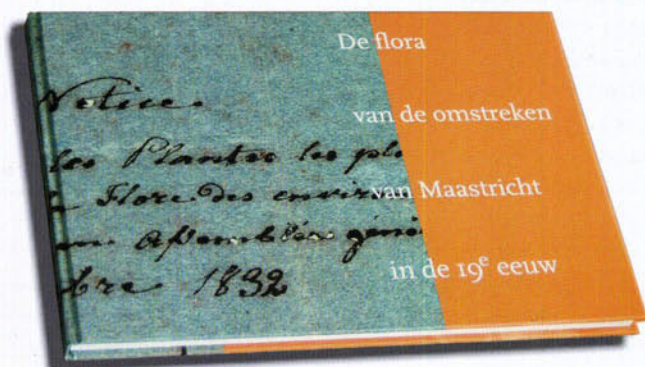 De flora
van de omstreken
van Maastricht
in de 19e eeuw
Notice.
les Plantes les pl
Flore des environs
Assemblée géné
bre 1832